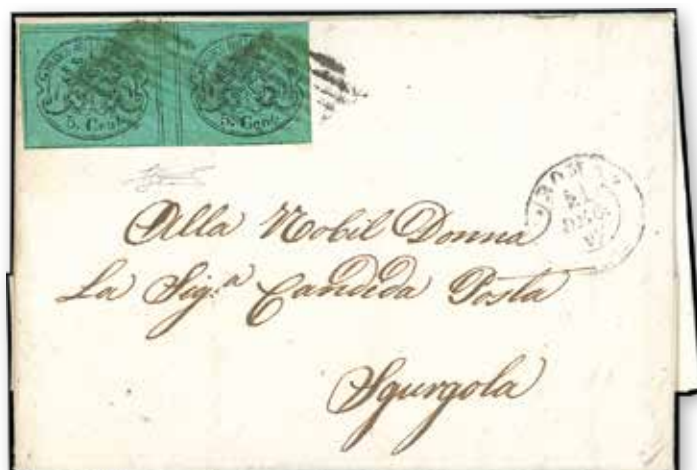 5. Cent. 5. Cent.
ROMA
DEC
Alla Nobil Donna
La Sig.ª Candida Posta
Sgurgola